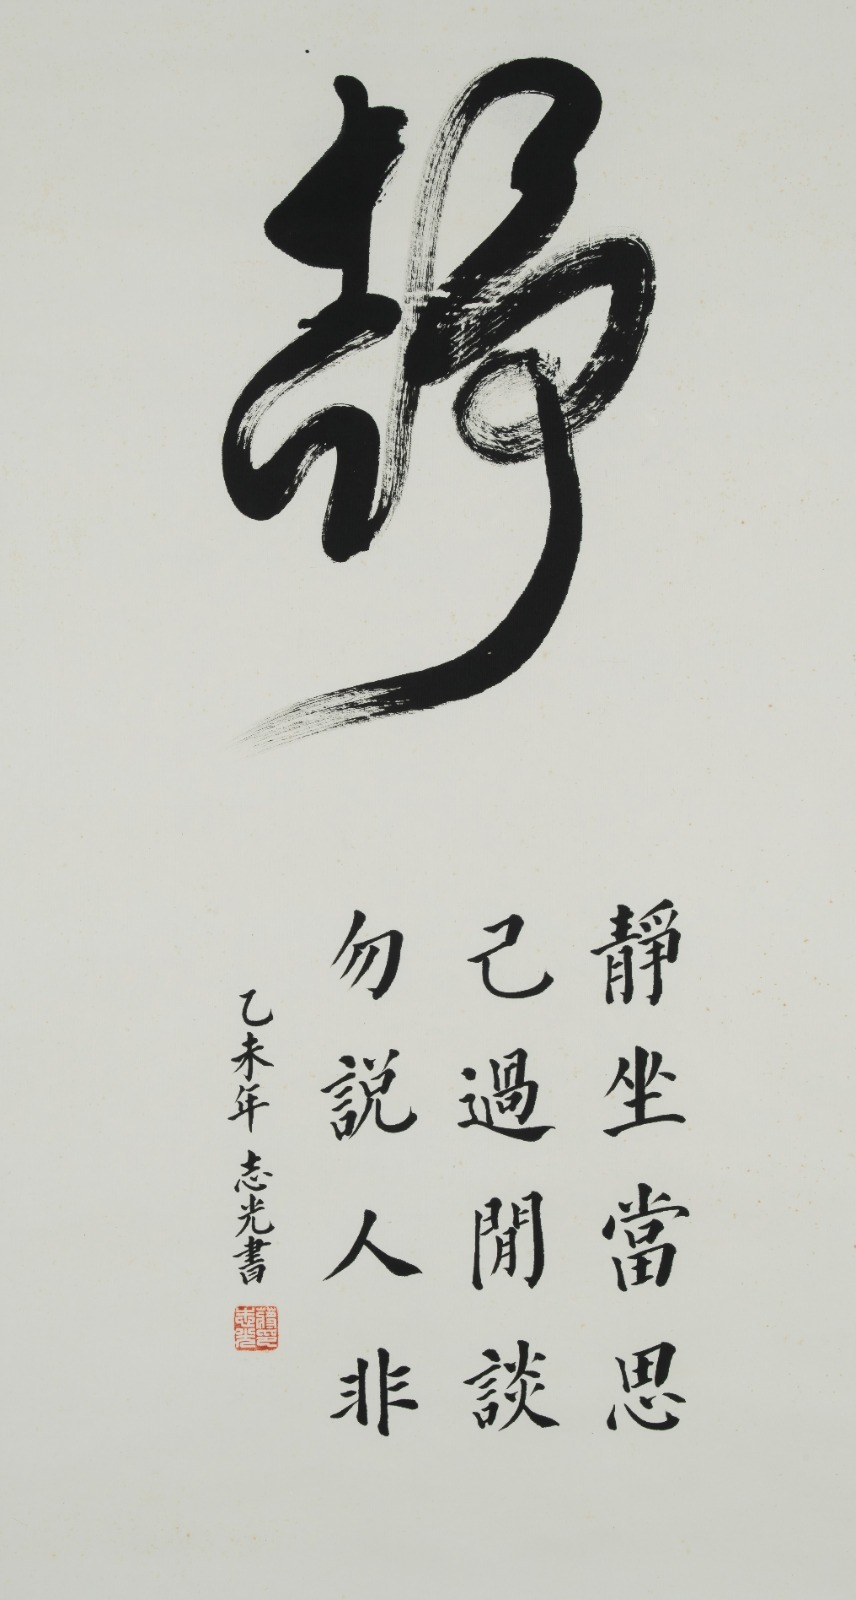 靜
靜坐當思
己過閒談
勿説人非
乙未年 志光書